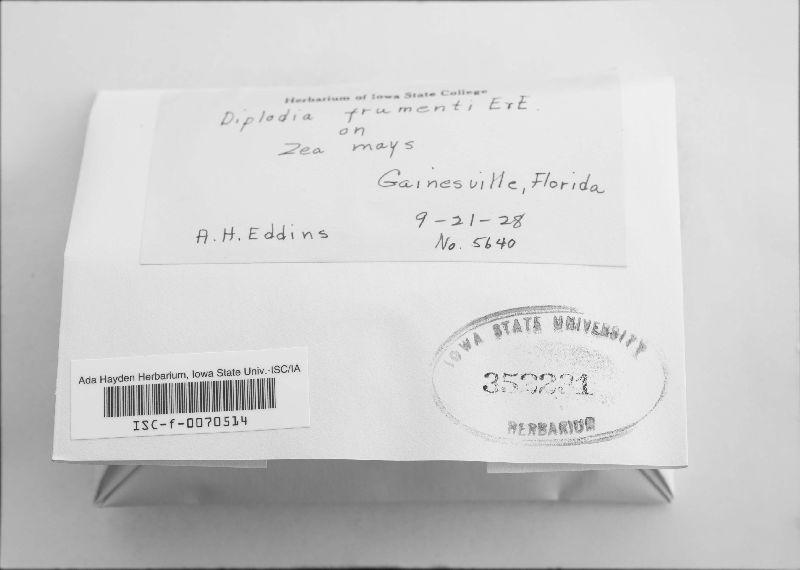 Herbarium of Iowa State College
Diplodia frumenti E&E.
on
Zea mays
Gainesville, Florida
9-21-28
A.H. Eddins
No. 5640
IOWA STATE UNIVERSITY
HERBARIUM
Ada Hayden Herbarium, Iowa State Univ.-ISC/IA
ISC-f-0070514